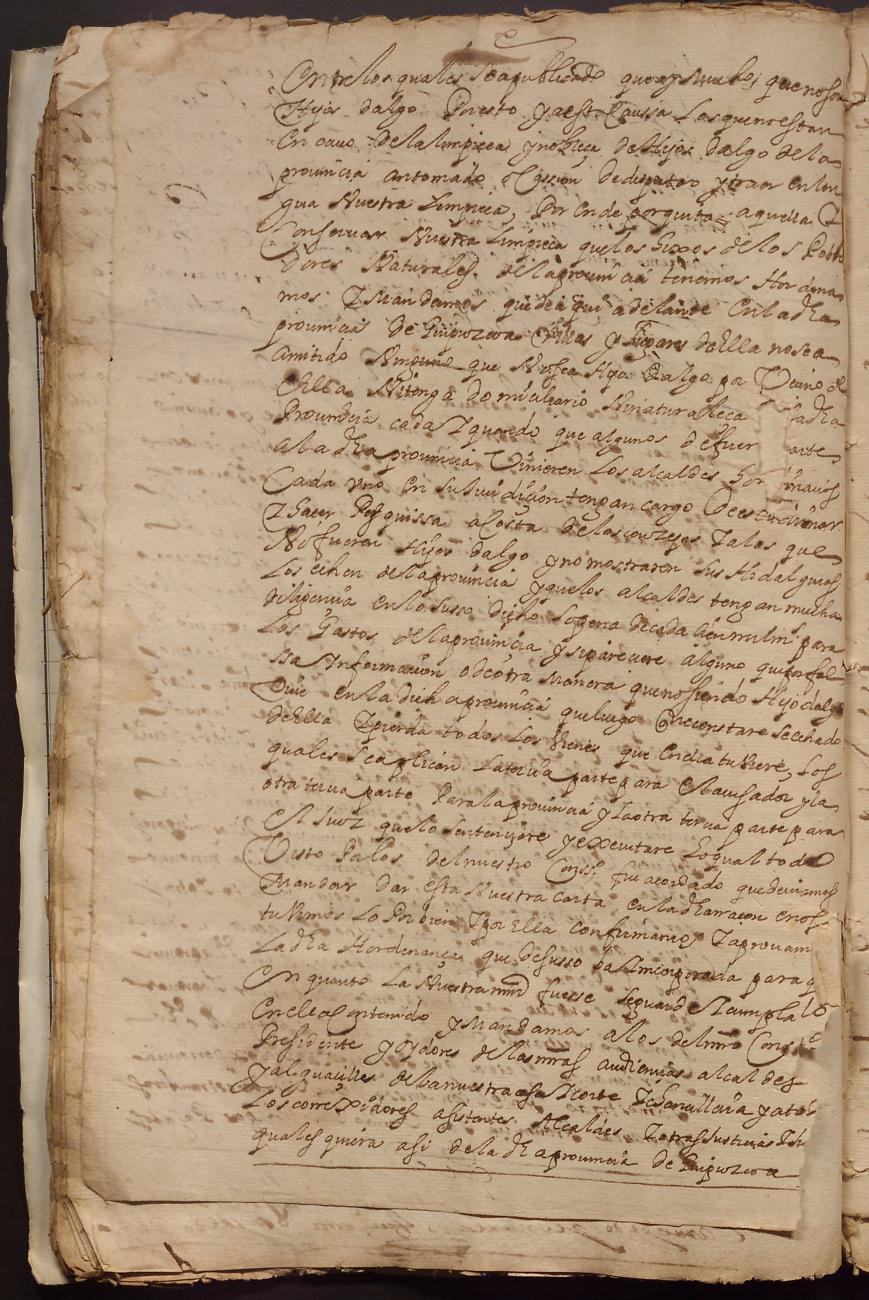 Entre los quales se a publicado que ay muchos que no son
Hijos dalgo Puesto y a esta Caussa Los que no estan
En cavo de la limpieza y nobleza de Hijos dalgo de la
provincia an tomado ocassion de disputar y traer en len
gua Nuestra Limpieza, Por Ende porquitar aquella E
Conservar Nuestra Limpieza que los hixos de los Pobla
dores Naturales de la provincia tenemos Hordena
mos E mandamos que de aqui adelante En la dha
provincia de Guipuzcoa Villas y lugares de Ella no sea
amitido Ninguno que No sea Hijo dalgo por Vecino de
Ella Ni tenga domiciliario Ni naturaleca la dha
Provincia cada E quando que algunos de fuer arte
a la dha provincia Vinieren Los alcaldes hordinarios
Cada uno En su Juridicion tengan cargo De escudriñar
E hacer Pesquissa a Costa de los conzejos E a los que
No fueren Hijos dalgo y no mostraren sus Hidalguias
Los echen de la provincia y que los alcaldes tengan mucha
diligencia en lo susso dicho so pena de cada cien mill mrs para
Los Gastos de la provincia y si pareciere alguno que por fal
ssa Informacion o de otra manera que no siendo Hijo dalgo
Vive en la dicha provincia que luego que constare se echado
de Ella E pierda todos los vienes que En ella tubiere, Los
quales se aplican La tercia parte para El acusador y la
otra tercia parte Para la provincia y la otra tercia parte para
El Juez que lo sentenziare y executare Lo qual todo
Visto Por los del nuestro Consso fue acordado que deviamos
mandar dar esta Nuestra carta en la dha racon E nos
tubimos Lo Por bien E por Ella confirmamos E aprovam
La dha Hordenança que desusso ba Incorporada para q
En quanto La Nuestra mrd fuesse se guarde E cumpla lo
En ella Contenido y Mandamos a los del nro Consso
Presidente y Oydores de las nras audiencias alcaldes
y alguaciles de la nuestra cassa E corte E chancilleria y a to
Los corregidores asistentes Alcaldes E otras Justicias
quales quiera asi de la dha provincia de Guipuzcoa